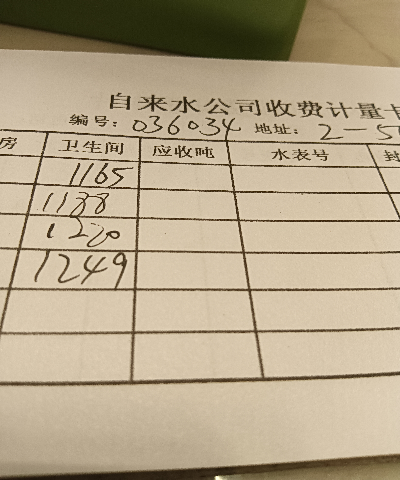 自来水公司收费计量卡
编号: 036034 地址: 2-5
房 卫生间 应收吨 水表号 封
1165
1188
1220
1249